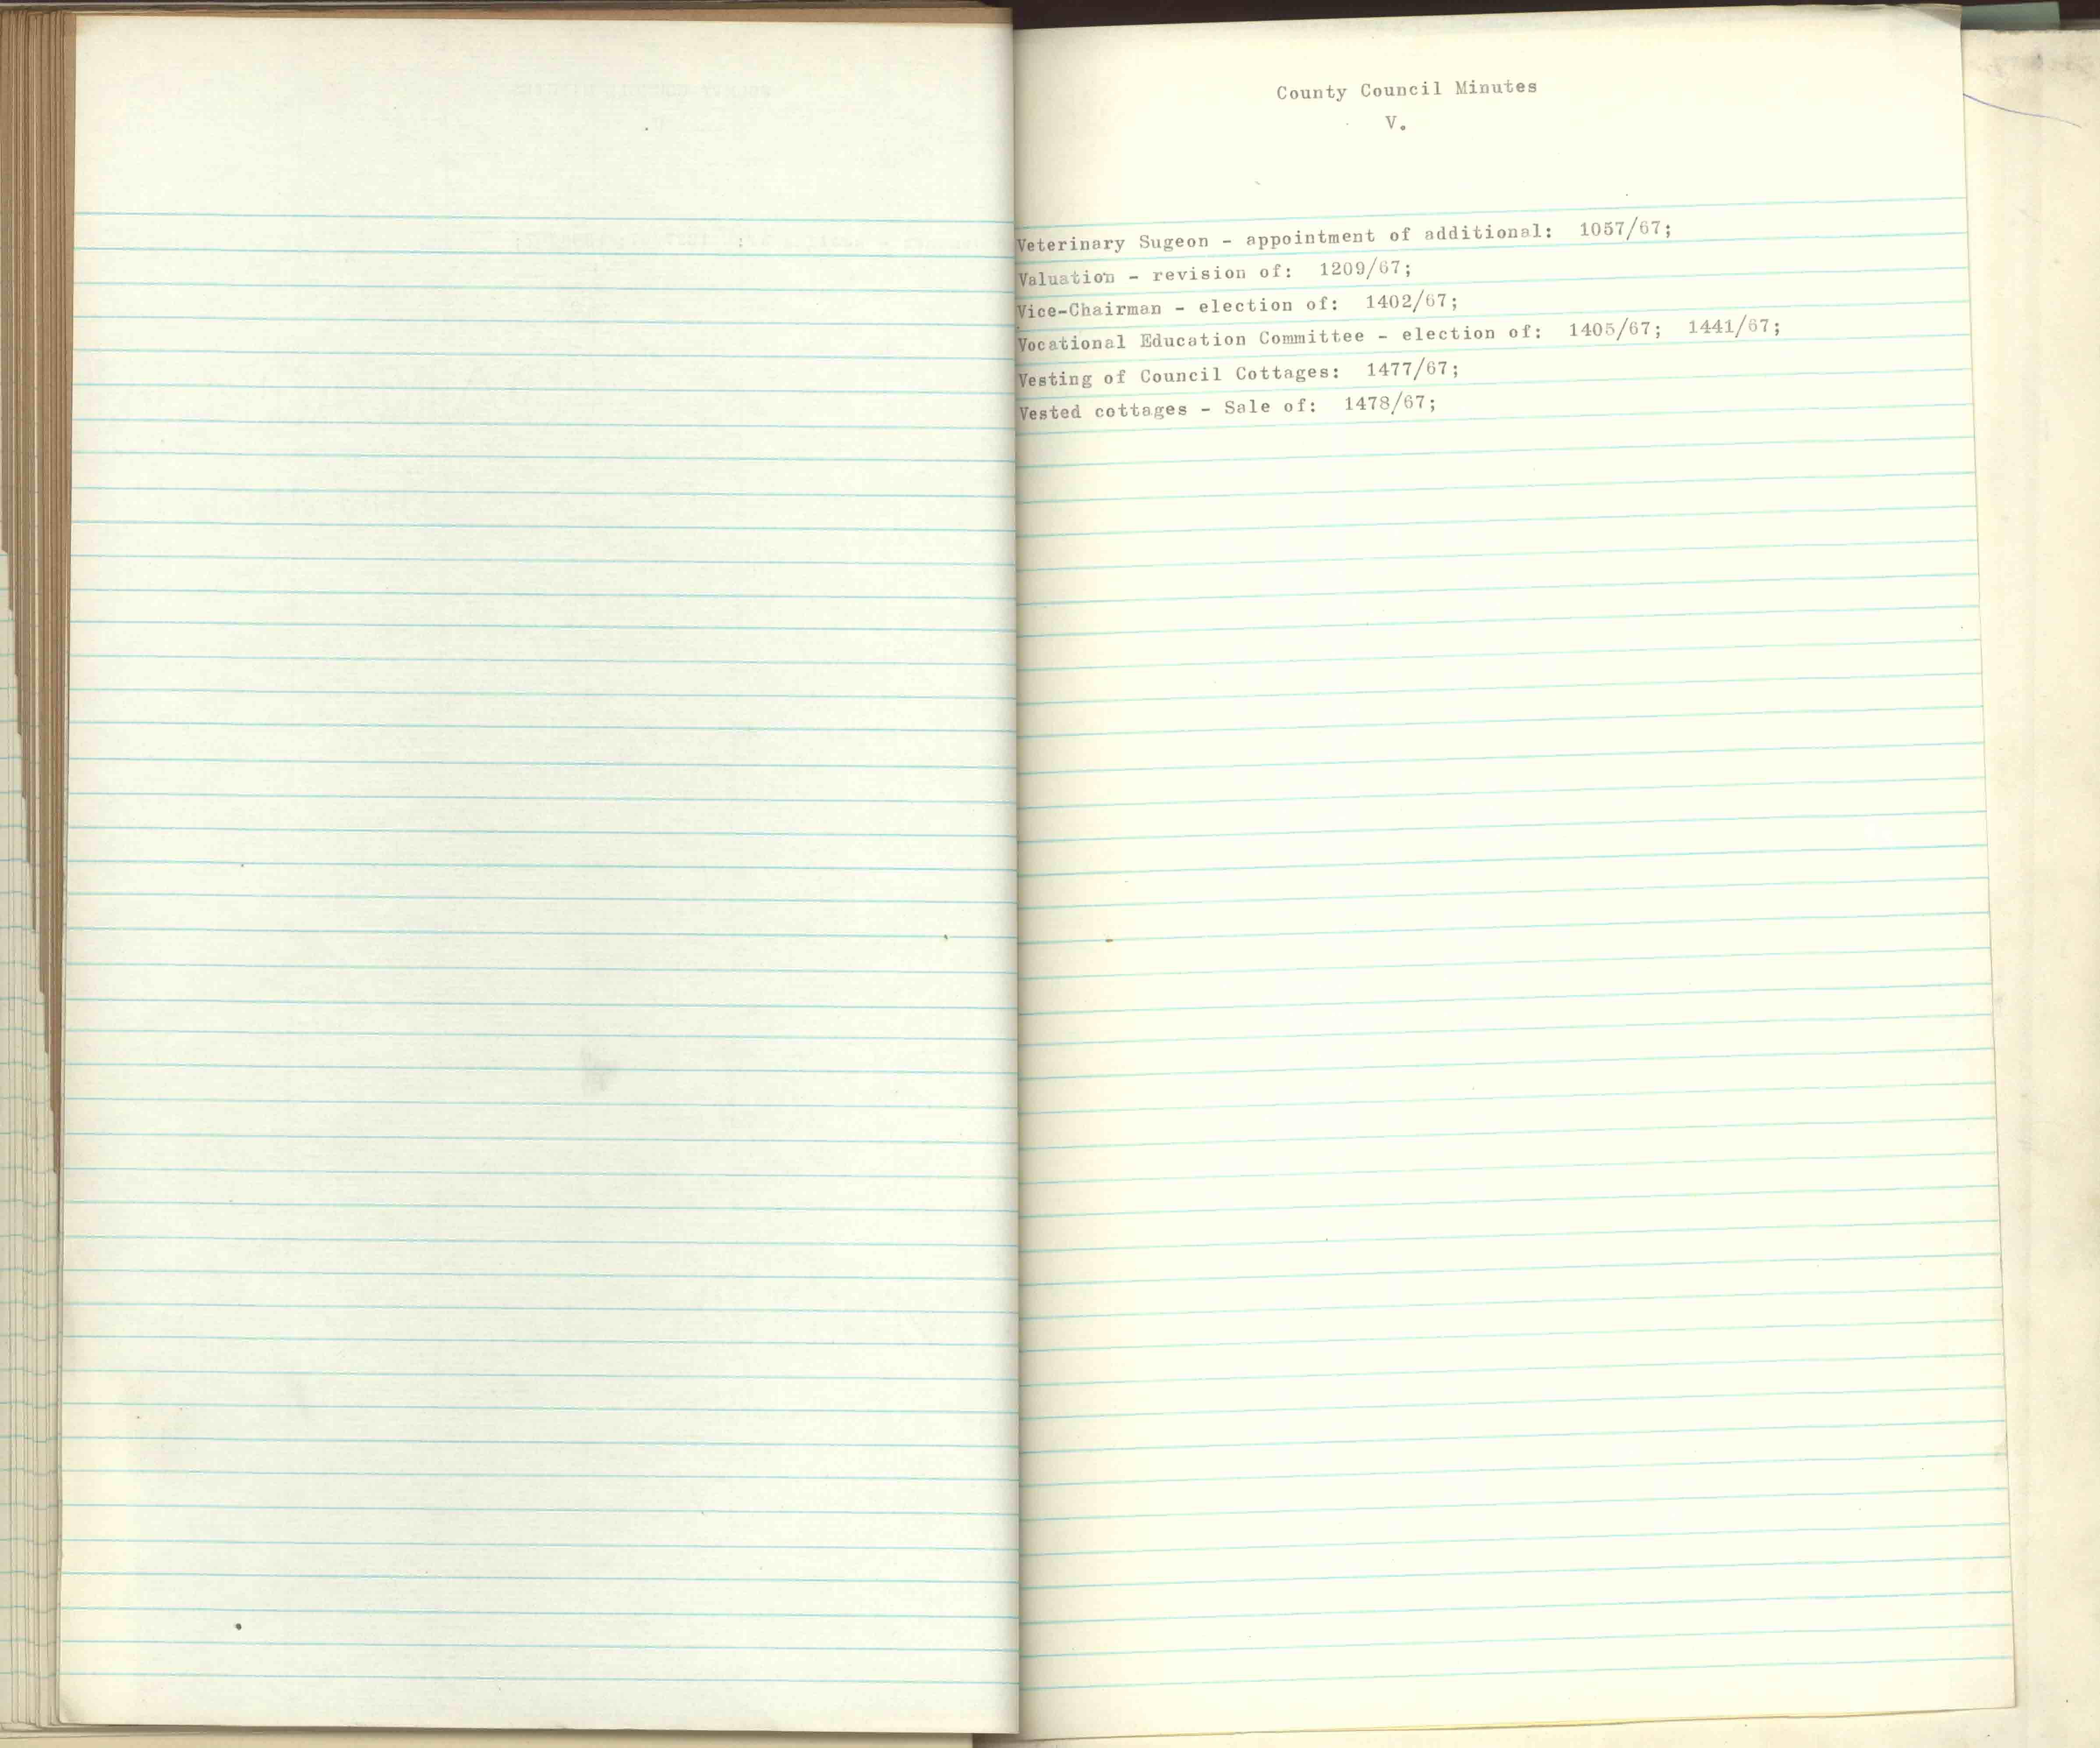 County Council Minutes
V.
Veterinary Sugeon - appointment of additional: 1057/67;
Valuation - revision of: 1209/67;
Vice-Chairman - election of: 1402/67;
Vocational Education Committee - election of: 1405/67; 1441/67;
Vesting of Council Cottages: 1477/67;
Vested cottages - Sale of: 1478/67;